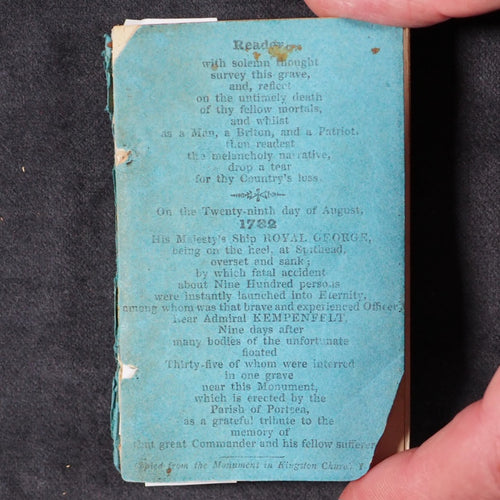 Reader
with solemn thought
survey this grave,
and, reflect
on the untimely death
of thy fellow mortals,
and whilst
as a Man, a Briton, and a Patriot,
thou readest
the melancholy narrative,
drop a tear
for thy Country's loss
On the Twenty-ninth day of August,
1782
His Majesty's Ship ROYAL GEORGE,
being on the heel, at Spithead,
overset and sank;
by which fatal accident
about Nine Hundred persons
were instantly launched into Eternity,
among whom was that brave and experienced Officer
Rear Admiral KEMPENFELT.
Nine days after
many bodies of the unfortunate
floated
Thirty-five of whom were interred
in one grave
near this Monument,
which is erected by the
Parish of Portsea,
as a grateful tribute to the
memory of
that great Commander and his fellow sufferer
Copied from the Monument in Kingston Church